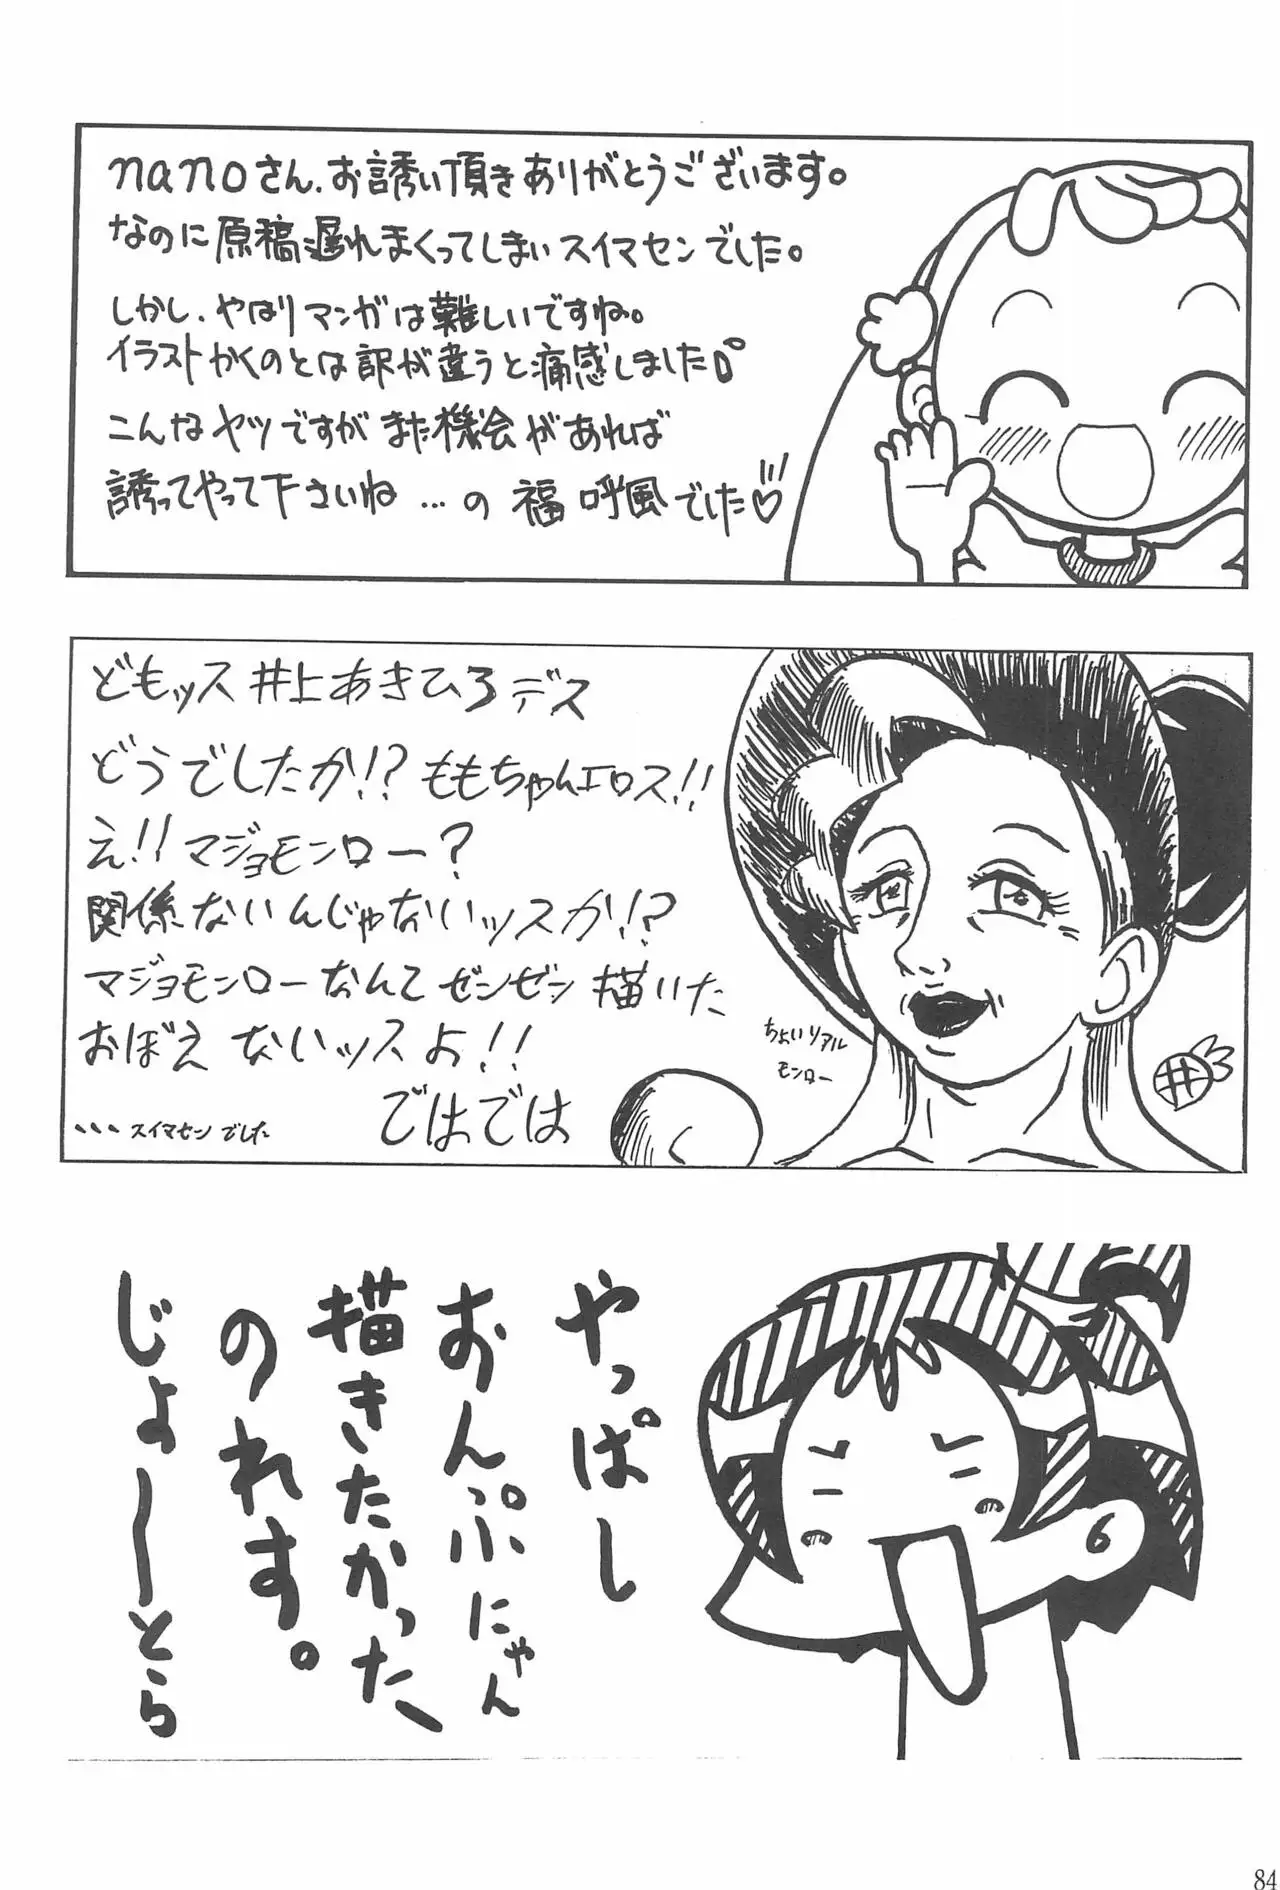 nanoさん、お誘い頂きありがとうございます。
なのに原稿遅れまくってしまいスイマセンでした。
しかし、やはりマンガは難しいですね。
イラストかくのとは訳が違うと痛感しました
こんなヤツですがまた機会があれば
誘ってやって下さいね …の 福 呼風でした♡
どもッス井上あきひろデス
どうでしたか!?ももちゃんエロス!!
え!!マジョモンロー?
関係ないんじゃないッスか!?
マジョモンローなんてゼンゼン描いた
おぼえないッスよ!!
ではでは
、、、スイマセンでした
ちょいリアル
モンロー
井
やっぱし
おんぷにゃん
描きたかった
のれす。
じょーとら
84